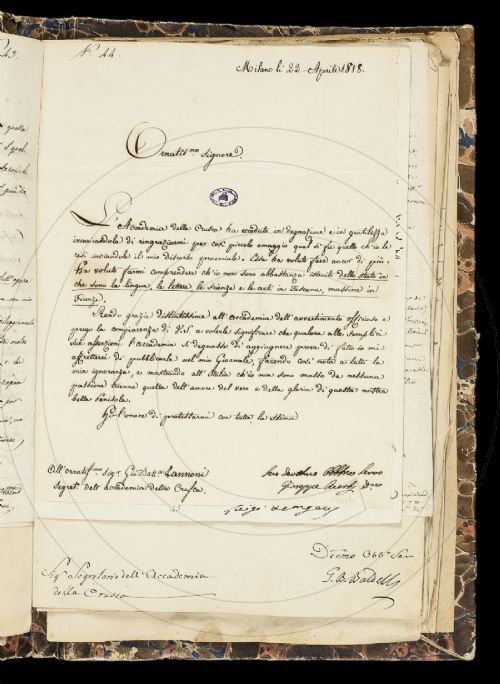 43.
N.° 44
Milano li 22 Aprile 1818.
Ornatis.mo Signore.
L'Accademia della Crusca ha ecceduto in degnazione e in gentilezza
incaricandola di ringraziarmi per così piccolo omaggio qual si fu quello ch'io le
resi inviandole il mio Discorso proemiale. Essa ha voluto fare ancor di più:
ha voluto farmi comprendere ch'io non sono abbastanza istruito dello stato in
che sono la lingua, le lettere, le scienze e le arti in Toscana, massime in
Firenze.
Rendo grazie distintissime all'accademia dell'avvertimento officioso e
prego la compiacenza di V.S. a volerle significare che qualora alle semplici
sue asserzioni l'accademia si degnasse di aggiugnere prove di fatto io mi
affretterei di pubblicarle nel mio Giornale, facendo così noto a tutti la
mia ignoranza, e mostrando all'Italia ch'io non sono mosso da nessuna
passione tranne quella dell'amore del vero e della gloria di questa nostra
bella Penisola.
Ho l'onore di protestarmi con tutta la stima
All'ornatis.mo Sig.r Gio. Batt.a Zannoni
Segret.o dell'accademia della Crusca.
Suo Servo
Giuseppe
Sig. Segretario dell'Accademia
della Crusca
G. B. Baldelli